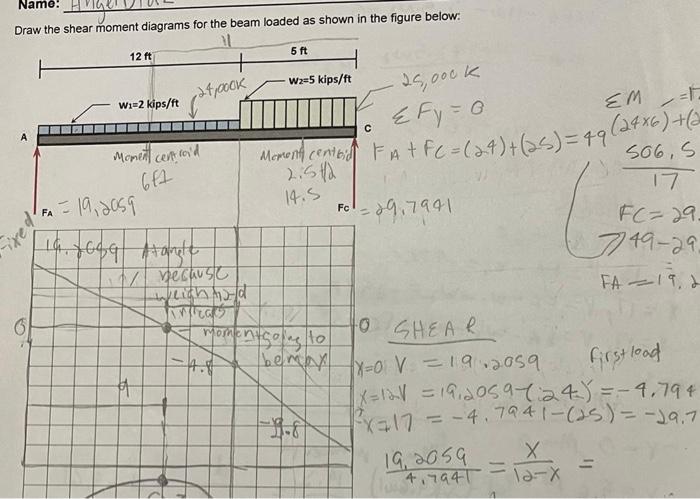 Name:
Draw the shear moment diagrams for the beam loaded as shown in the figure below:
12 ft
11
5 ft
24,000K
W₂=5 kips/ft
25,000K
W₁=2 kips/ft
A
C
ΣFy = 0
ΣM
Moment centroid
6ft
Moment centroid
2.5ft/2
14.5
FA + FC = (24)+(25) = 49
(24×6)+(2
506.5
17
FA = 19.2059
FC = 29.7941
FC = 29.
49-29
FA = 19.2
Fixed
19.2059
At angle
because
weight and
moment going to
be max
0
0
-4.8
SHEAR
x=0 V = 19.2059
first load
x=12 V = 19.2059-(24) = -4.794
x=17 = -4.7941-(25) = -29.7
19.2059
4.7941
=
x
12-x
=